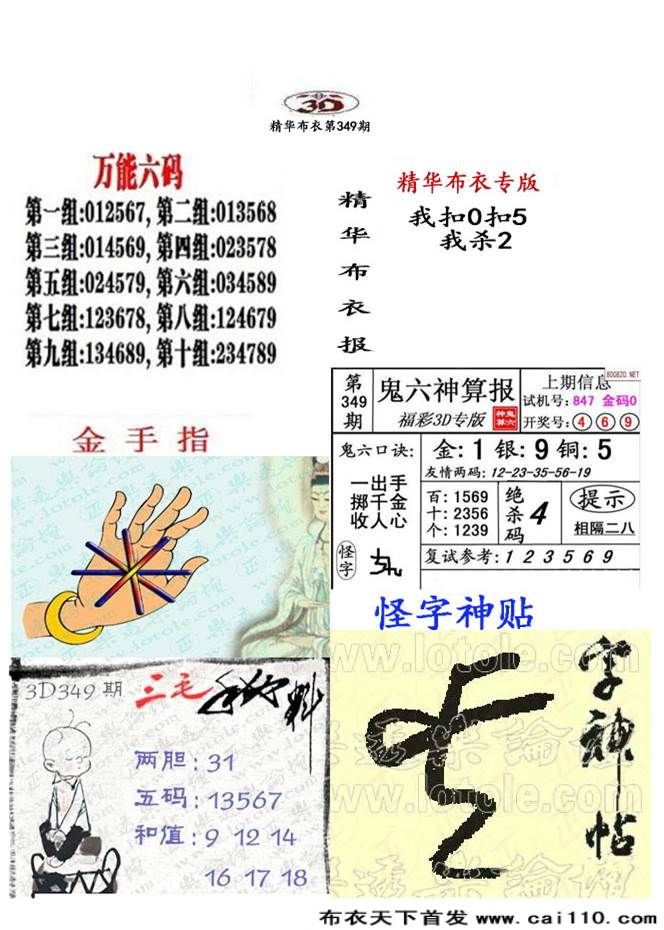 3D
精华布衣第349期
万能六码
第一组:012567,第二组:013568
第三组:014569,第四组:023578
第五组:024579,第六组:034589
第七组:123678,第八组:124679
第九组:134689,第十组:234789
精华布衣报
精华布衣专版
我扣0扣5
我杀2
800820.NET
第349期
鬼六神算报
福彩3D专版
神鬼算六
上期信息
试机号:847 金码0
开奖号:④⑥⑨
鬼六口诀:
一出手
掷千金
收人心
金:1 银:9 铜:5
友情两码:12-23-35-56-19
百:1569
十:2356
个:1239
绝杀码 4
提示
相隔二八
怪字
复试参考:1 2 3 5 6 9
金手指
怪字神贴
www.lotole.com
字神帖
www.lotole.com
3D349期
三毛
料
两胆:31
五码:13567
和值:9 12 14
16 17 18
布衣天下首发 www.cai110.com